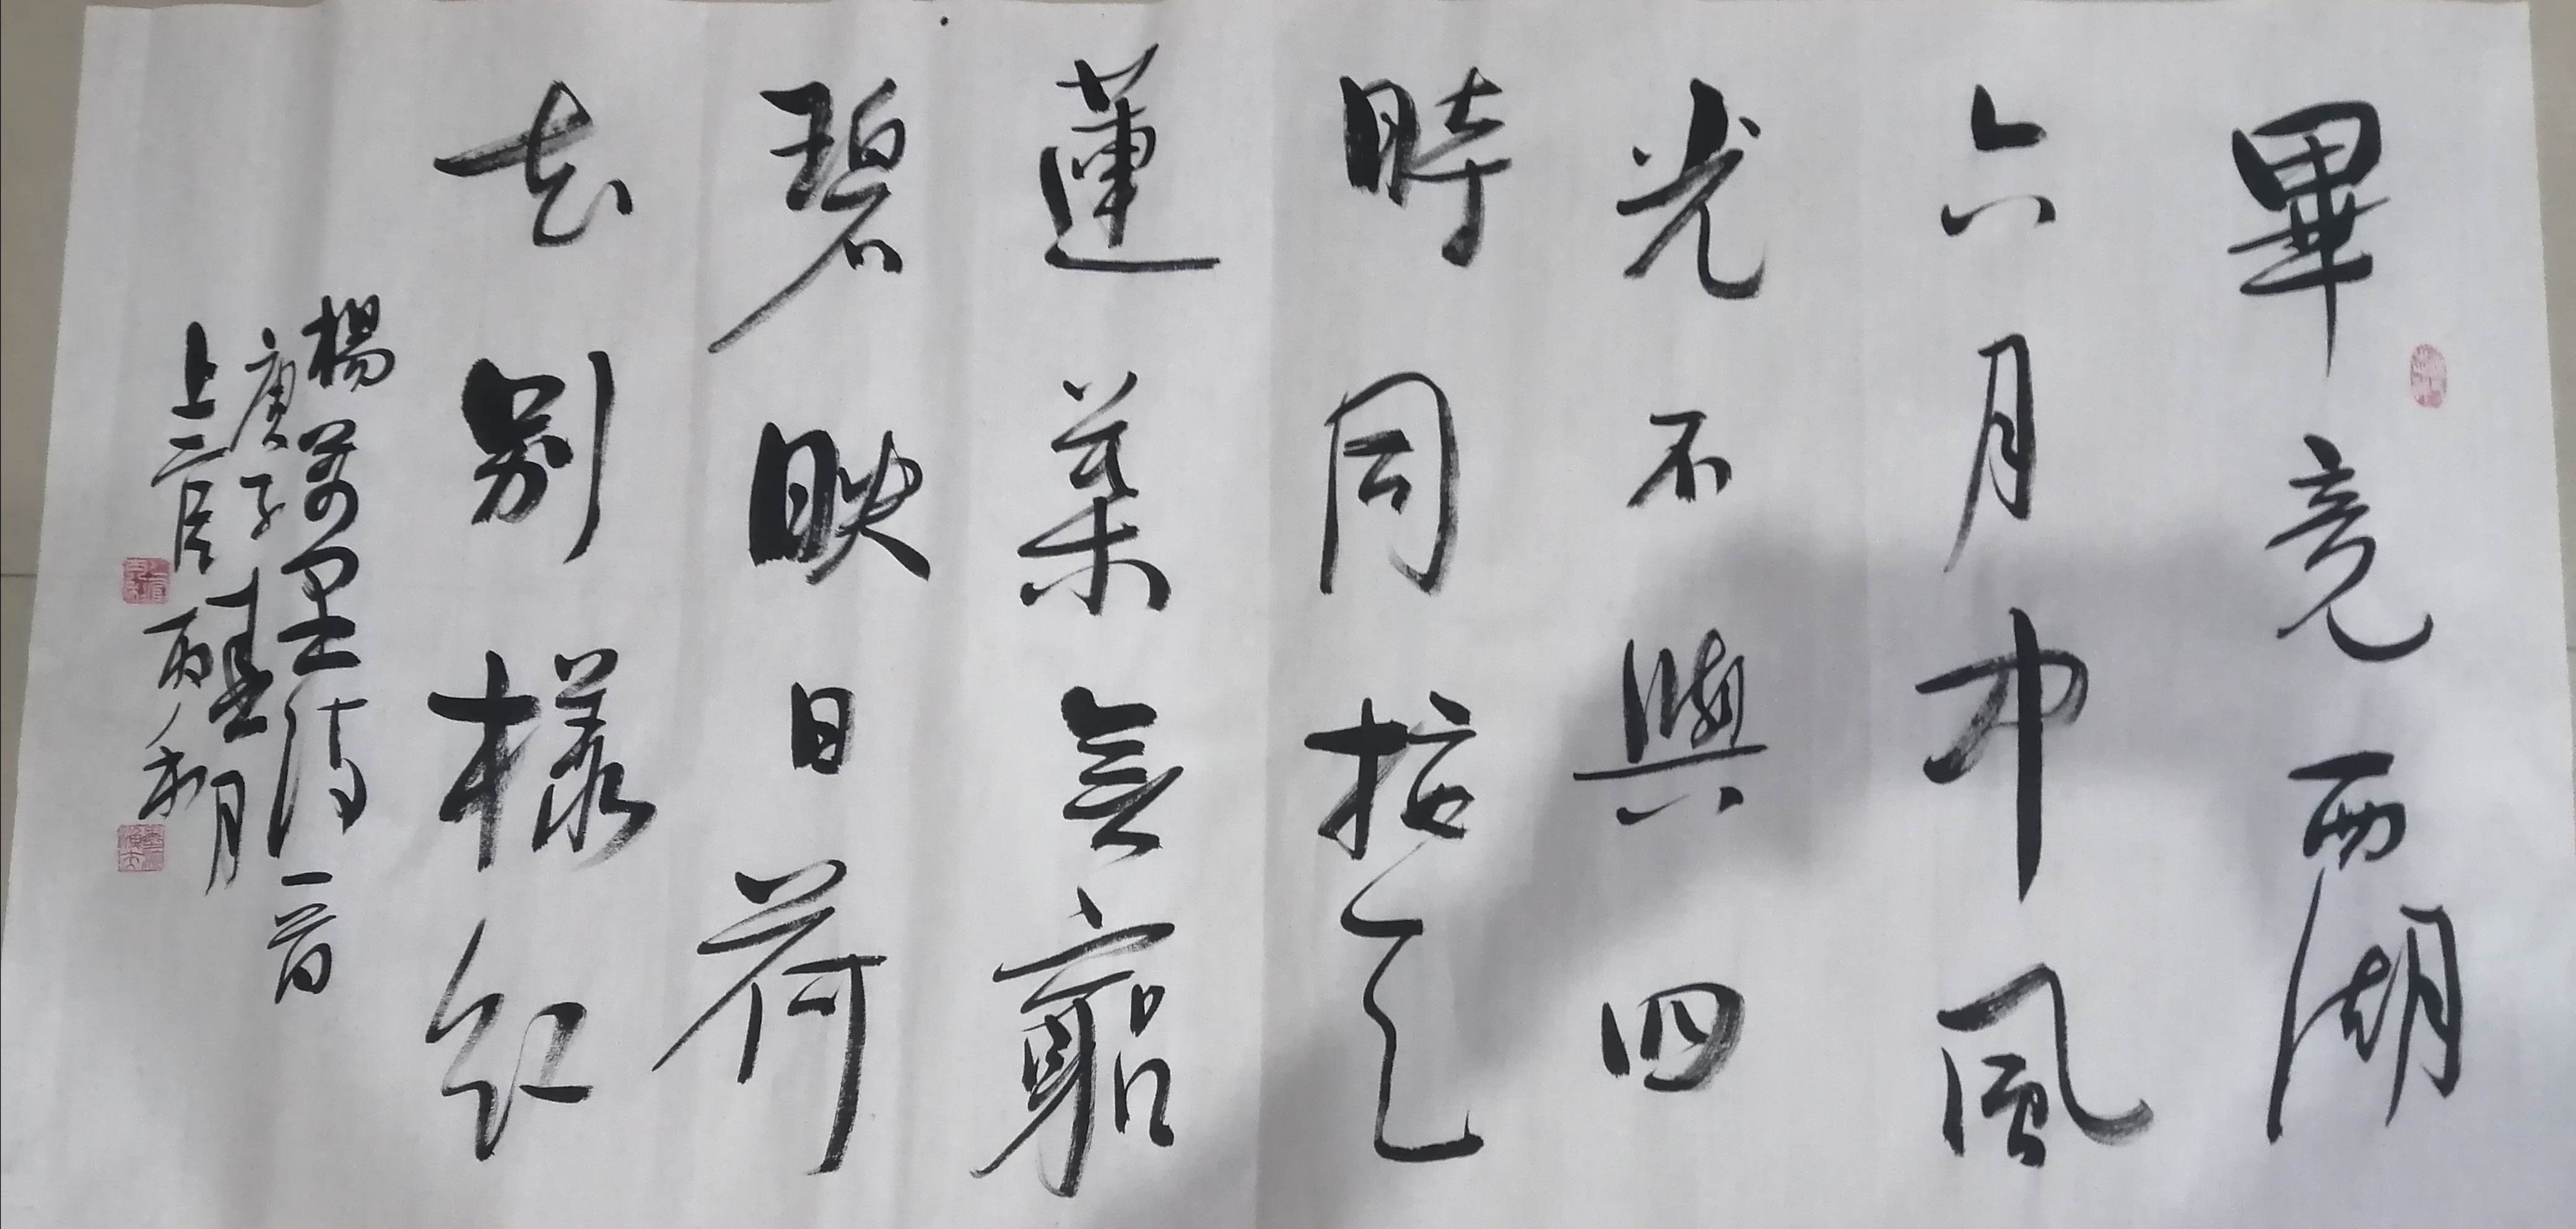 畢竟西湖
六月中風
光不與四
時同接天
蓮葉無窮
碧映日荷
花別樣紅
楊萬里詩一首
庚子月
上官